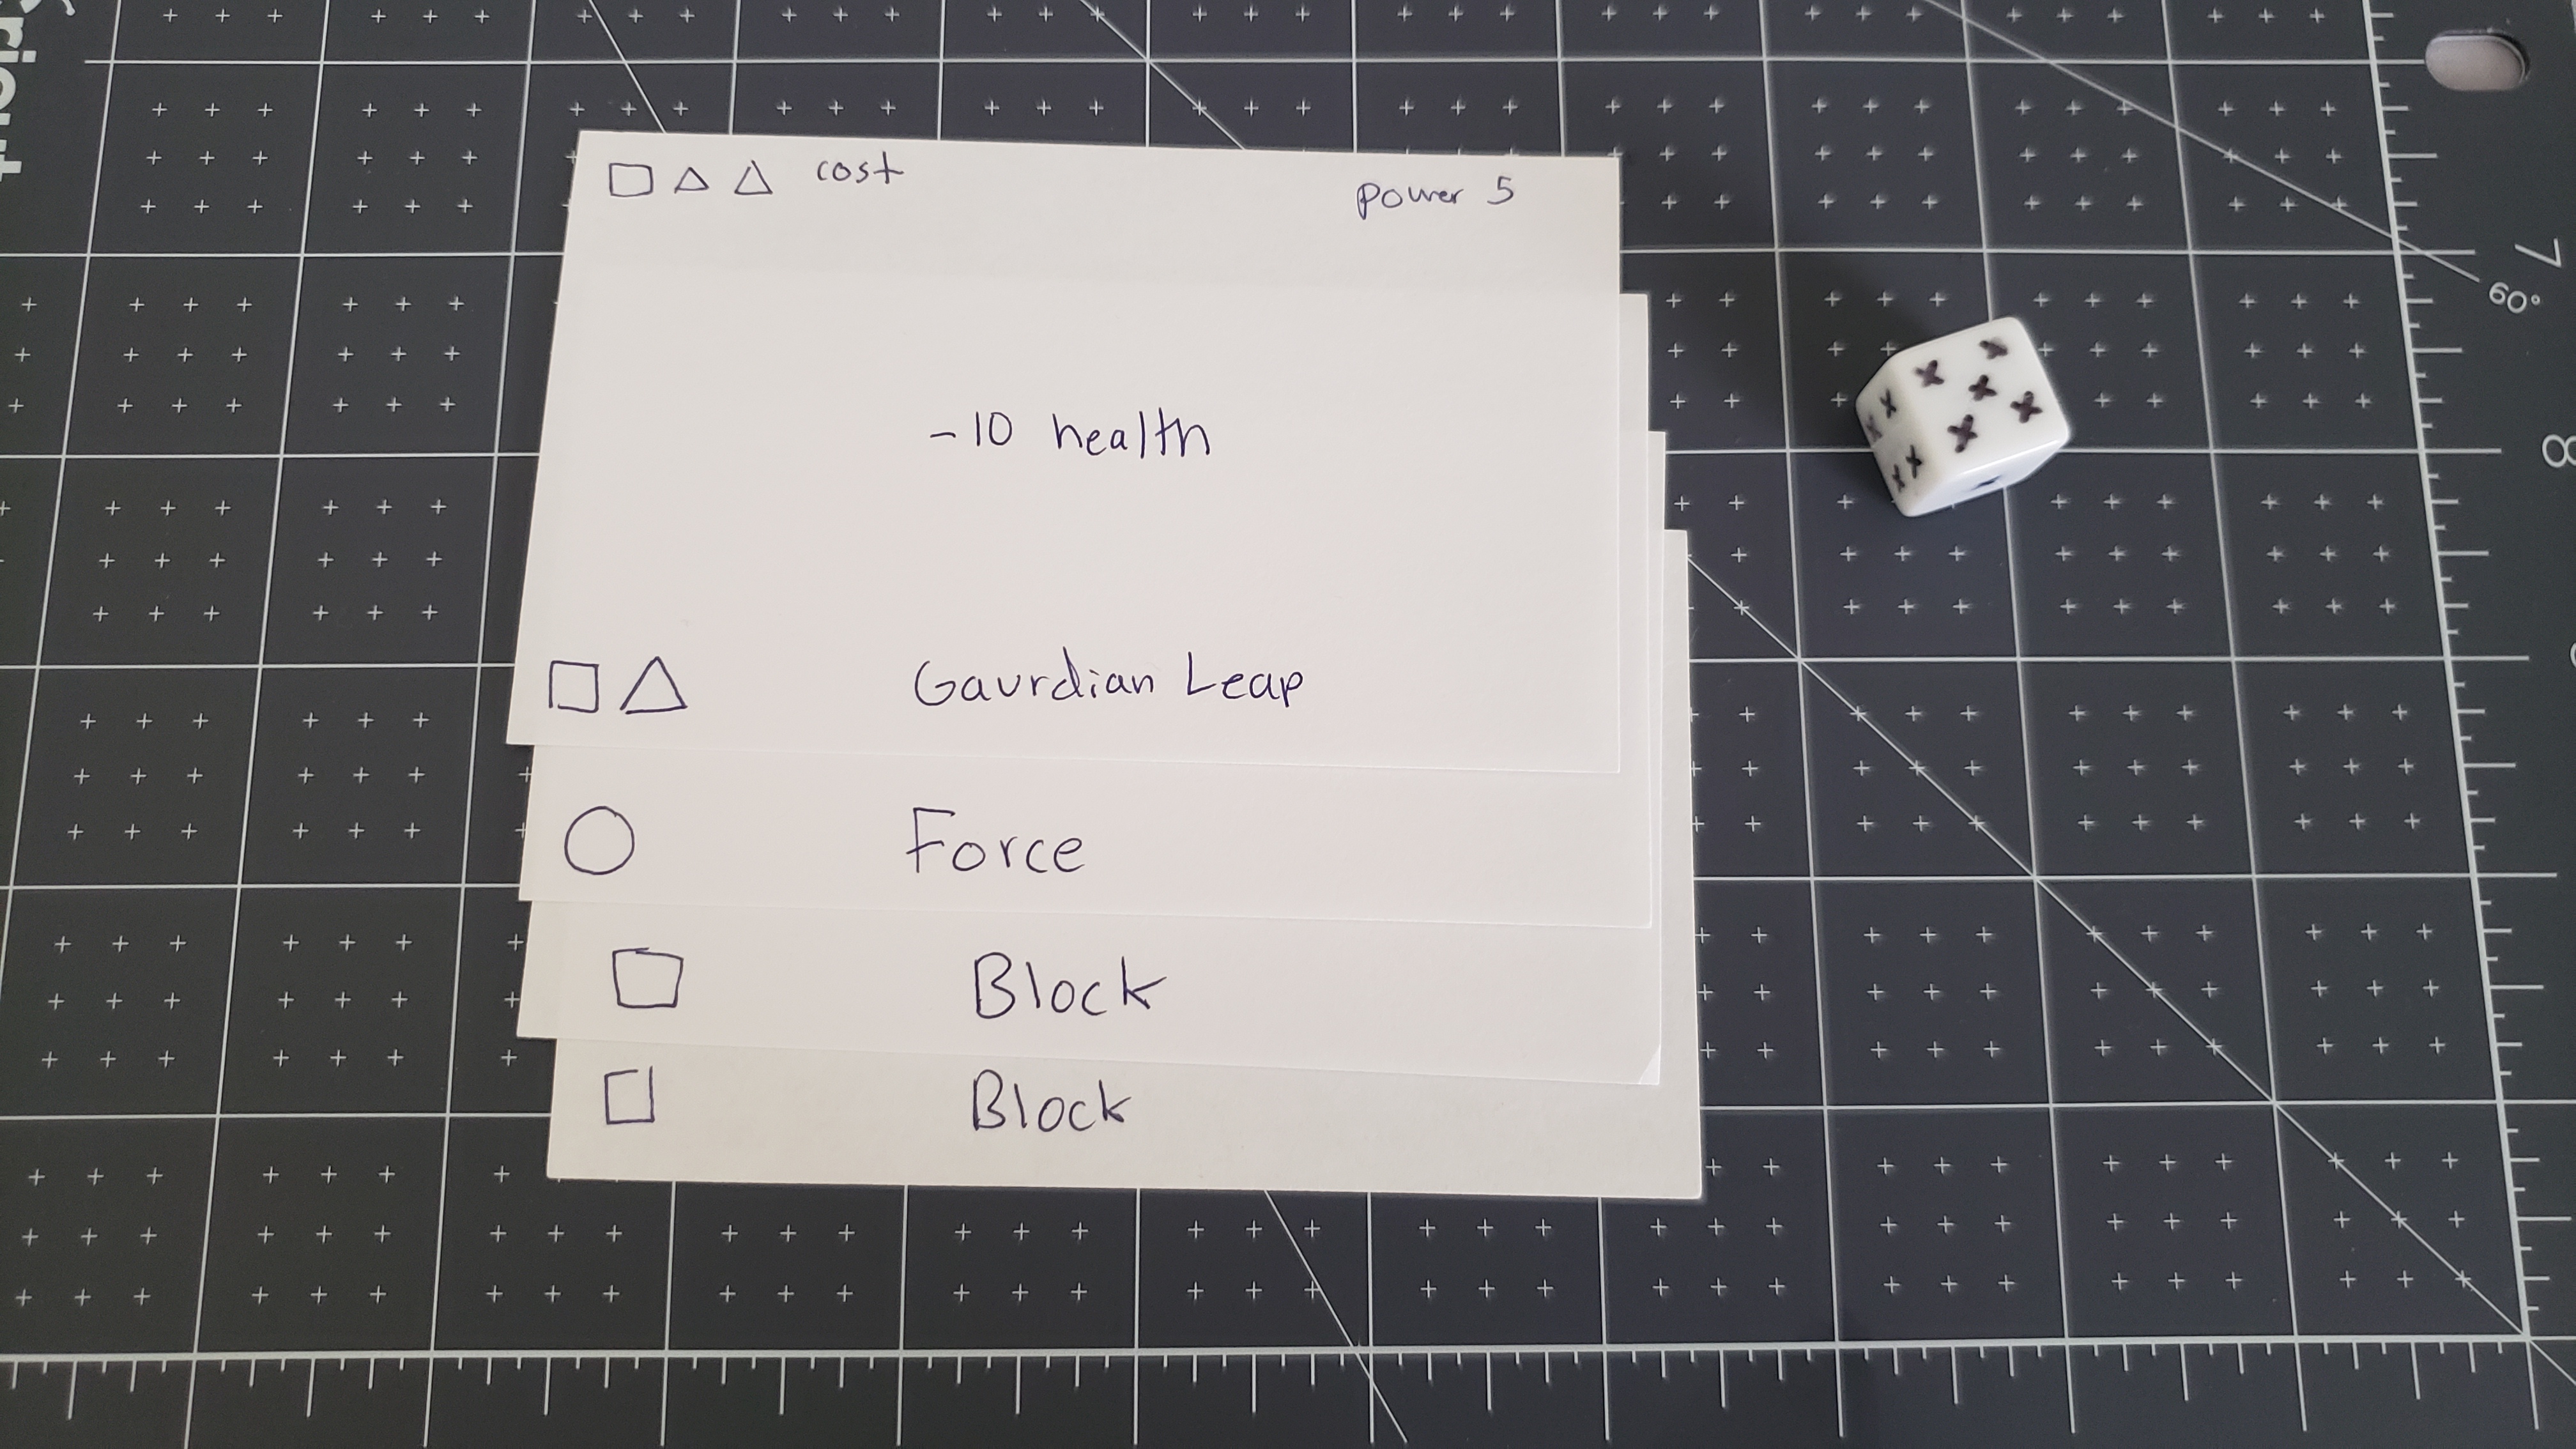 cost
power 5
-10 health
Gaurdian Leap
Force
Block
Block
7
60°
8